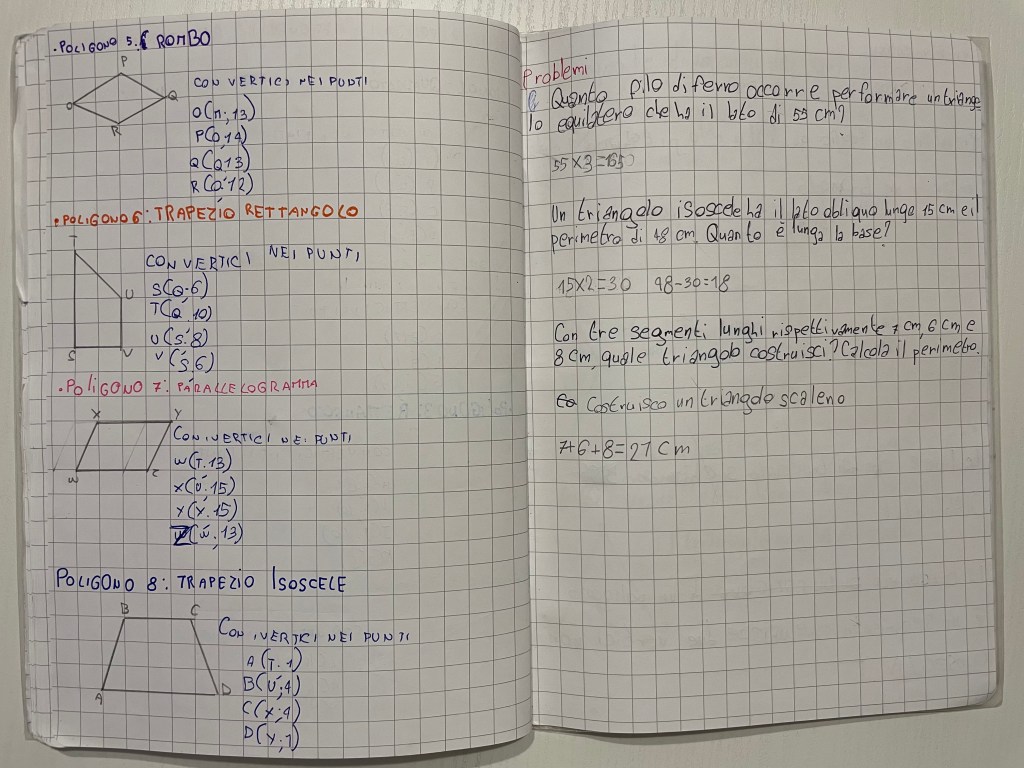 .POLIGONO 5: ROMBO
P
O
Q
R
CON VERTICI NEI PUNTI
O(n;13)
P(O,14)
Q(Q,13)
R(O,12)
.POLIGONO 6: TRAPEZIO RETTANGOLO
T
U
S
V
CON VERTICI NEI PUNTI
S(Q.6)
T(Q,10)
U(S.8)
V(S,6)
.POLIGONO 7: PARALLELOGRAMMA
X
Y
W
C
CON VERTICI NEI PUNTI
W(T.13)
X(U.15)
Y(Y.15)
Z(W,13)
POLIGONO 8: TRAPEZIO ISOSCELE
B
C
A
D
CON VERTICI NEI PUNTI
A(T.1)
B(U;4)
C(X;4)
D(Y;1)
Problemi
Quanto filo di ferro occorre per formare un triango
lo equilatero che ha il lato di 55 cm?
55x3=165
Un triangolo isoscele ha il lato obliquo lungo 15 cm e il
perimetro di 48 cm. Quanto è lunga la base?
15x2=30 48-30=18
Con tre segmenti lunghi rispettivamente 7 cm, 6 cm e
8 cm, quale triangolo costruisci? Calcola il perimetro.
Costruisco un triangolo scaleno
7+6+8=21 cm